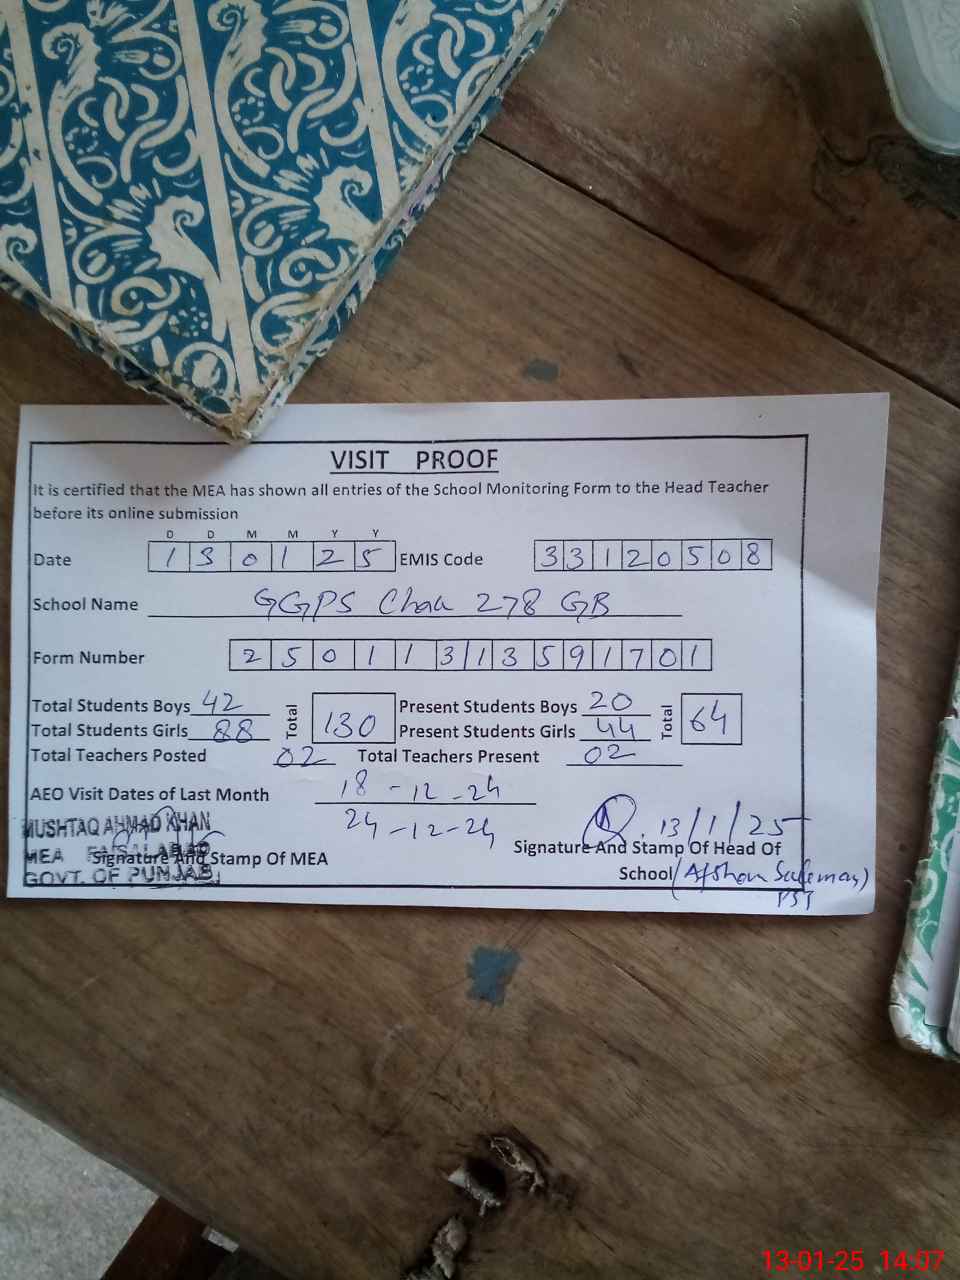 VISIT PROOF
It is certified that the MEA has shown all entries of the School Monitoring Form to the Head Teacher
before its online submission
D D M M Y Y
Date 1 3 0 1 2 5 EMIS Code 3 3 1 2 0 5 0 8
School Name GGPS Chak 278 GB
Form Number 2 5 0 1 1 3 1 3 5 9 1 7 0 1
Total Students Boys 42 Total 130 Present Students Boys 20 Total 64
Total Students Girls 88 Present Students Girls 44
Total Teachers Posted 02 Total Teachers Present 02
AEO Visit Dates of Last Month 18-12-24
24-12-24
MUSHTAQ AHMAD KHAN
MEA FAISALABAD
GOVT. OF PUNJAB
Signature And Stamp Of MEA
13/1/25
Signature And Stamp Of Head Of
School (Afshan Suleman)
PST
13-01-25 14:07